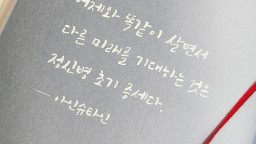 어제와 똑같이 살면서
다른 미래를 기대하는 것은
정신병 초기 증세다.
— 아인슈타인